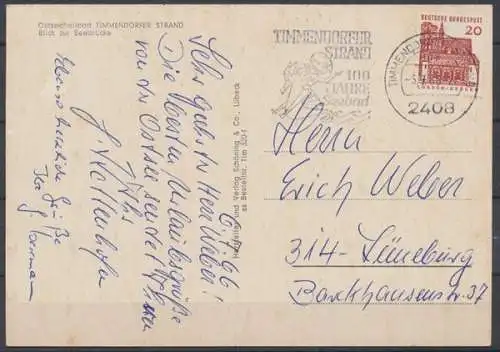 Ostseeheilbad TIMMENDORFER STRAND
Blick zur Seebrücke
6.7.66
Sehr geehrter Herr Weber!
Die besten Urlaubsgrüße
von der Ostsee sendet Ihnen
Ihr
Ebenso herzliche Grüße
Ihr
Herstellung und Verlag Schöning & Co., Lübeck
TIMMENDORFER
STRAND
100
JAHRE
Seebad
TIMMENDORFER
2408
DEUTSCHE BUNDESPOST
20
LORSCH · HESSEN
Herrn
Erich Weber
314-Lüneburg
Barckhausenstr. 37